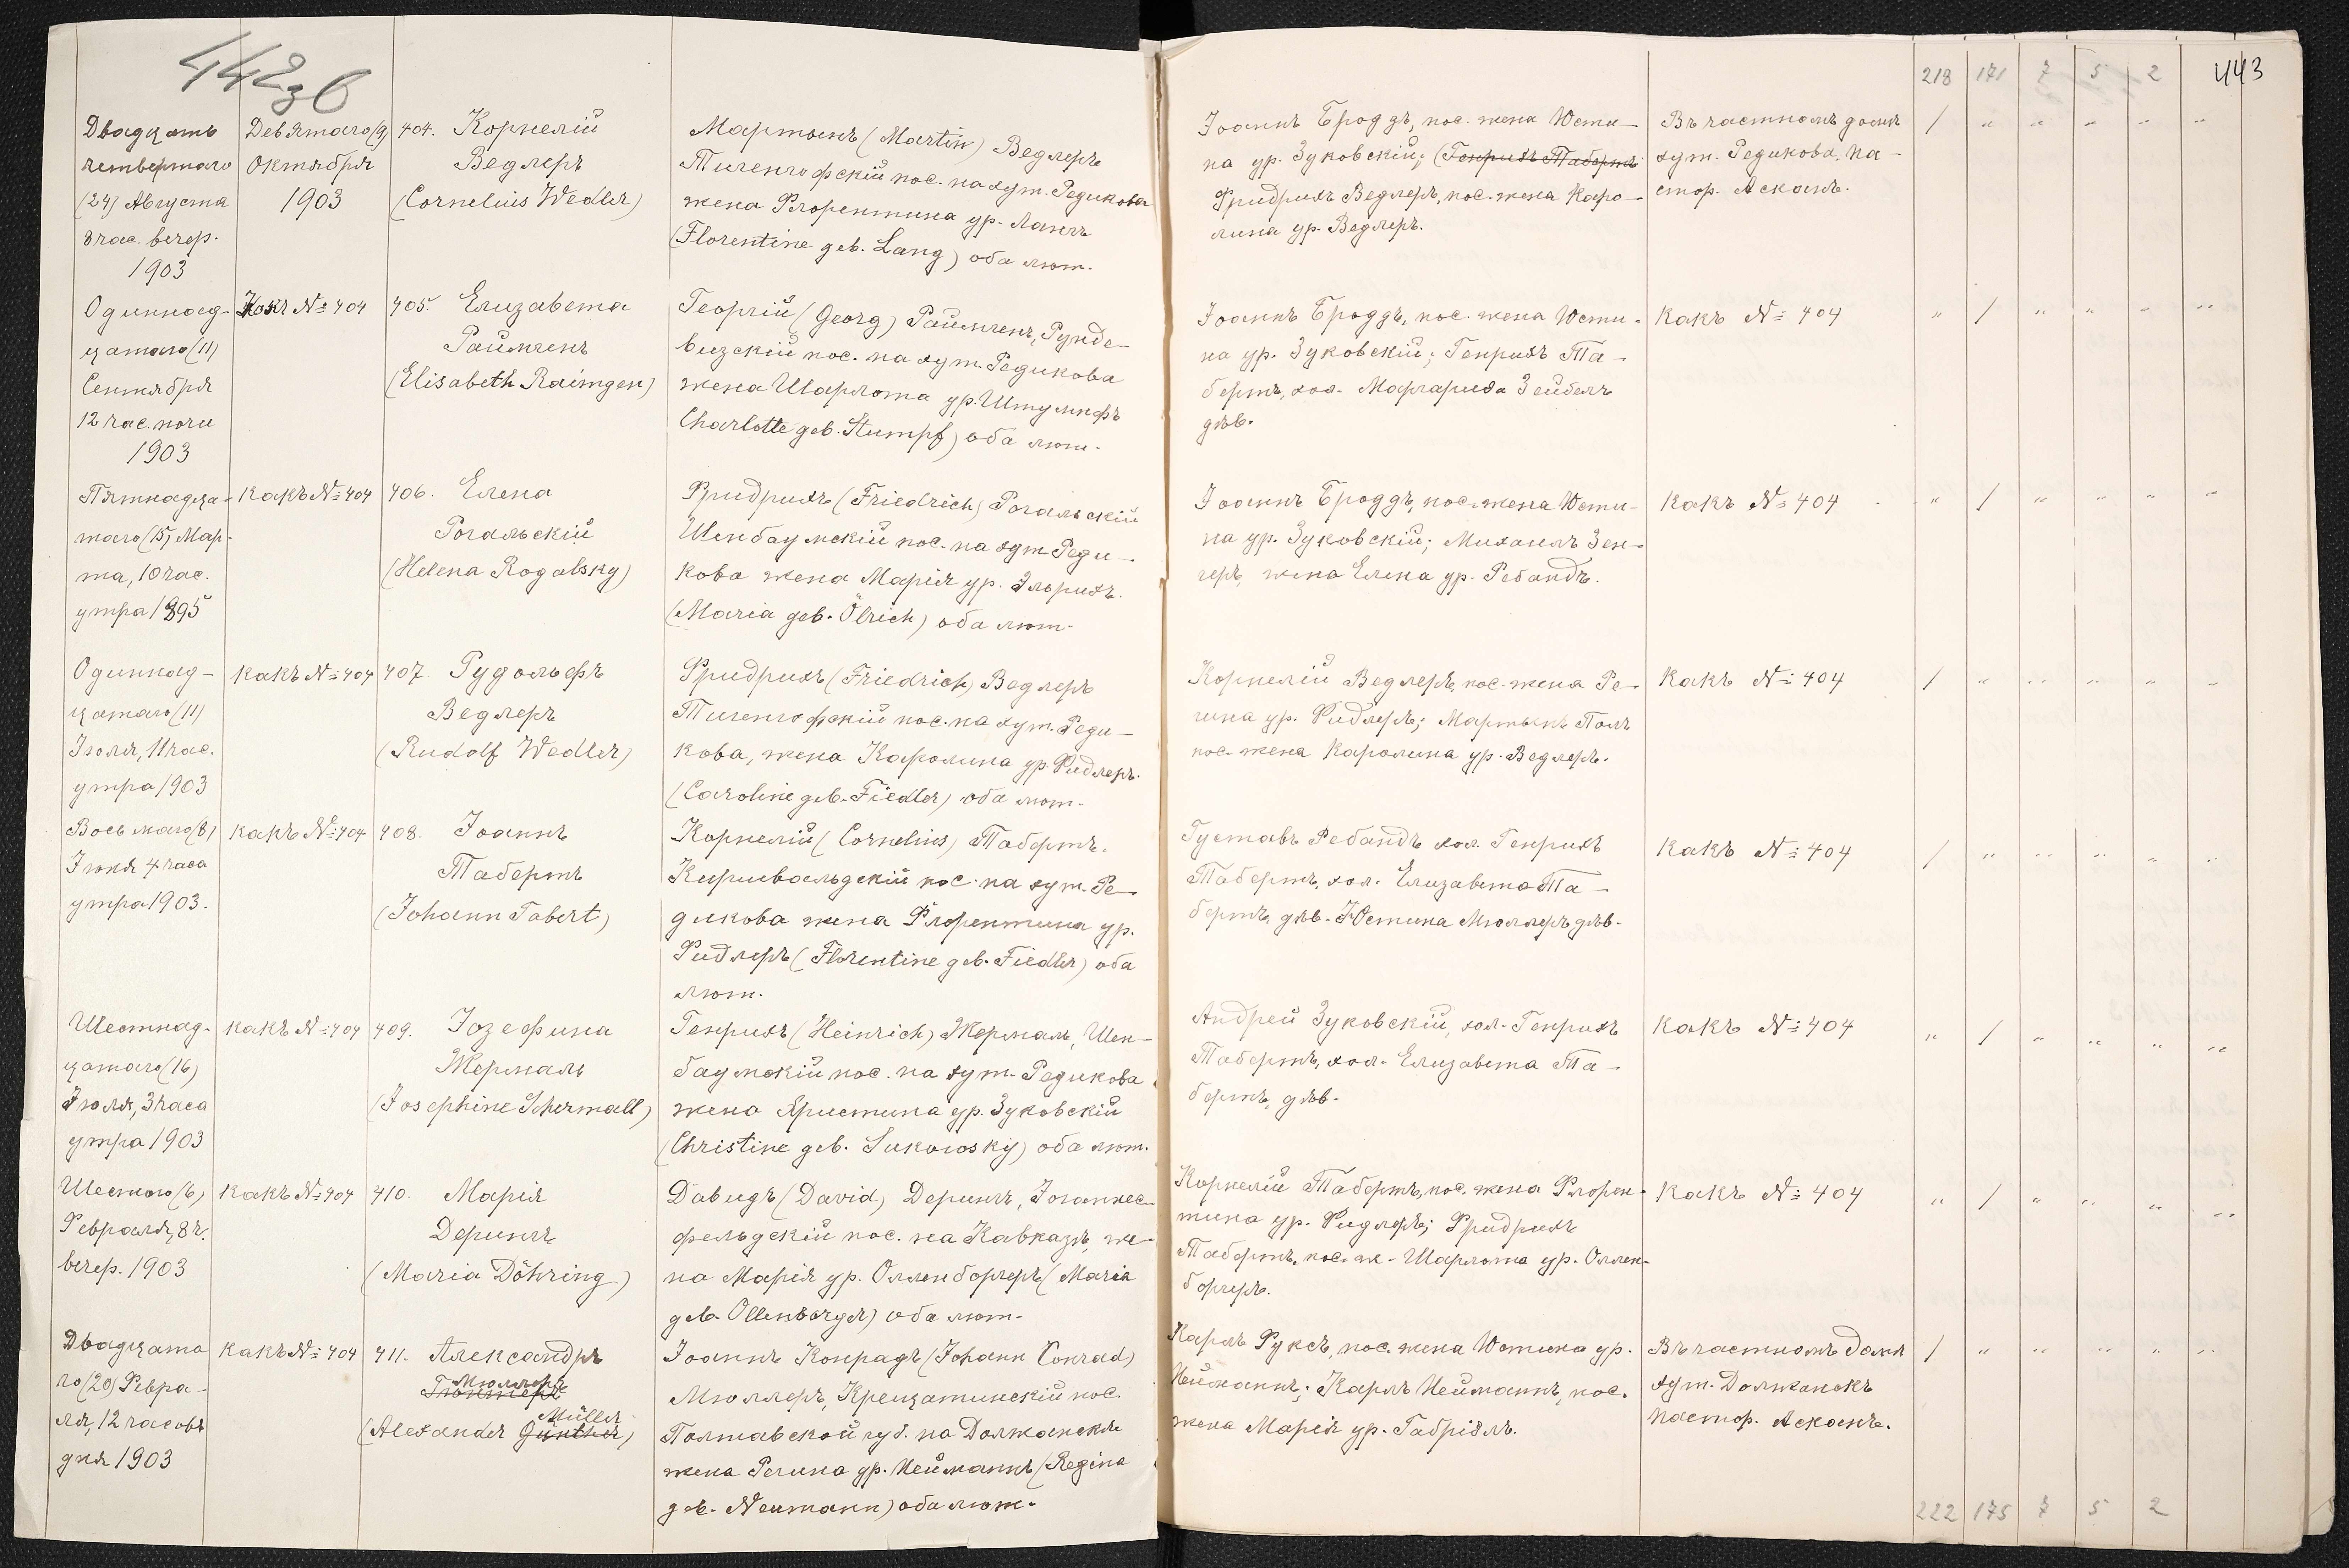 442 об
218 171 7 5 2 443
Двадцать
четвертаго
(24) Августа
8 час. вечер.
1903
Девятаго (9)
Октября
1903
404. Корнелій
Ведлеръ
(Cornelius Wedler)
Мартынъ (Martin) Ведлеръ
Тигенгофскій пос. на хут. Редикова
жена Флорентина ур. Лангъ
(Florentine geb. Lang) оба лют.
Іоаннъ Броддъ, пос. жена Юсти-
на ур. Зуковскій; (Генрихъ Табертъ
Фридрихъ Ведлеръ, пос. жена Каро-
лина ур. Ведлеръ.
Въ частномъ домѣ
хут. Редикова, па-
стор. Асканъ.
1 " " " " "
Одиннад-
цатаго (11)
Сентября
12 час. ночи
1903
Какъ № 404
405. Елизавета
Раймгенъ
(Elisabeth Raimgen)
Георгій (Georg) Раймгенъ, Рунде-
визскій пос. на хут. Редикова
жена Шарлота ур. Штумпфъ
Charlotte geb. Stumpf) оба лют.
Іоаннъ Броддъ, пос. жена Юсти-
на ур. Зуковскій; Генрихъ Та-
бертъ, хол. Маргарита Зейбель
дѣв.
Какъ № 404
" 1 " " " "
Пятнадца-
таго (15) Мар-
та, 10 час.
утра 1895
Какъ № 404
406. Елена
Рогальскій
(Helena Rogalsky)
Фридрихъ (Friedrich) Рогальскій
Шенбаумскій пос. на хут. Реди-
кова жена Марія ур. Эльрихъ.
(Maria geb. Ölrich) оба лют.
Іоаннъ Броддъ, пос. жена Юсти-
на ур. Зуковскій; Михаилъ Зен-
геръ, жена Елена ур. Ребандъ.
Какъ № 404
" 1 " " " "
Одиннад-
цатаго (11)
Іюля, 11 час.
утра 1903
Какъ № 404
407. Рудольфъ
Ведлеръ
(Rudolf Wedler)
Фридрихъ (Friedrich) Ведлеръ
Тигенгофскій пос. на хут. Реди-
кова, жена Каролина ур. Фидлеръ.
(Caroline geb. Fiedler) оба лют.
Корнелій Ведлеръ, пос. жена Ре-
гина ур. Фидлеръ; Мартынъ Поль
пос. жена Каролина ур. Ведлеръ.
Какъ № 404
1 " " " " "
Восьмаго (8)
Іюня 4 часа
утра 1903.
Какъ № 404
408. Іоаннъ
Табертъ
(Johann Tabert)
Корнелій (Cornelius) Табертъ.
Киршвальдскій пос. на хут. Ре-
дикова жена Флорентина ур.
Фидлеръ (Florentine geb. Fiedler) оба
лют.
Густавъ Ребандъ хол. Генрихъ
Табертъ, хол. Елизавета Та-
бертъ, дѣв. Юстина Мюллеръ дѣв.
Какъ № 404
1 " " " " "
Шестнад-
цатаго (16)
Іюля, 3 часа
утра 1903
Какъ № 404
409. Іозефина
Жермаль
(Josephine Schermall)
Генрихъ (Heinrich) Жермаль, Шен-
баумскій пос. на хут. Редикова
жена Христина ур. Зуковскій
(Christine geb. Sukowsky) оба лют.
Андрей Зуковскій, хол. Генрихъ
Табертъ, хол. Елизавета Та-
бертъ, дѣв.
Какъ № 404
" 1 " " " "
Шестого (6)
Февраля, 8 ч.
вечер. 1903
Какъ № 404
410. Марія
Дерингъ
(Maria Döhring)
Давидъ (David) Дерингъ, Іоганнес-
фельдскій пос. на Кавказѣ, же-
на Марія ур. Олленбергеръ (Maria
geb. Ollenberger) оба лют.
Корнелій Табертъ, пос. жена Флорен-
тина ур. Фидлеръ; Фридрихъ
Табертъ, пос. ж. Шарлота ур. Оллен-
бергеръ.
Какъ № 404
" 1 " " " "
Двадцата
го (20) Февра-
ля, 12 часовъ
дня 1903
Какъ № 404
411. Александръ
Мюллеръ
Гюнтеръ
Müller
(Alexander Günther)
Іоаннъ Конрадъ (Johann Conrad)
Мюллеръ, Крещатинскій пос.
Полтавской губ. на Должанскѣ
жена Регина ур. Нейманнъ (Regina
geb. Neumann) оба лют.
Карлъ Руксъ, пос. жена Юстина ур.
Нейманнъ; Карлъ Нейманнъ, пос.
жена Марія ур. Габріэль.
Въ частномъ домѣ
хут. Должанскъ
пастор. Асканъ.
1 " " " " "
222 175 7 5 2